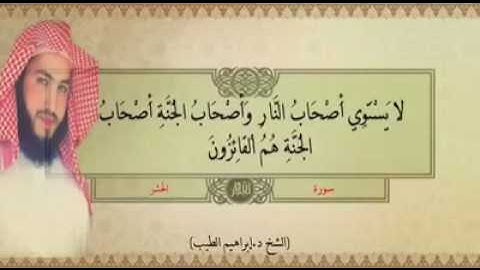 لَا يَسْتَوِي أَصْحَابُ النَّارِ وَأَصْحَابُ الْجَنَّةِ أَصْحَابُ
الْجَنَّةِ هُمُ الْفَائِزُونَ
سورة الحشر
(الشيخ د.إبراهيم الطيب)